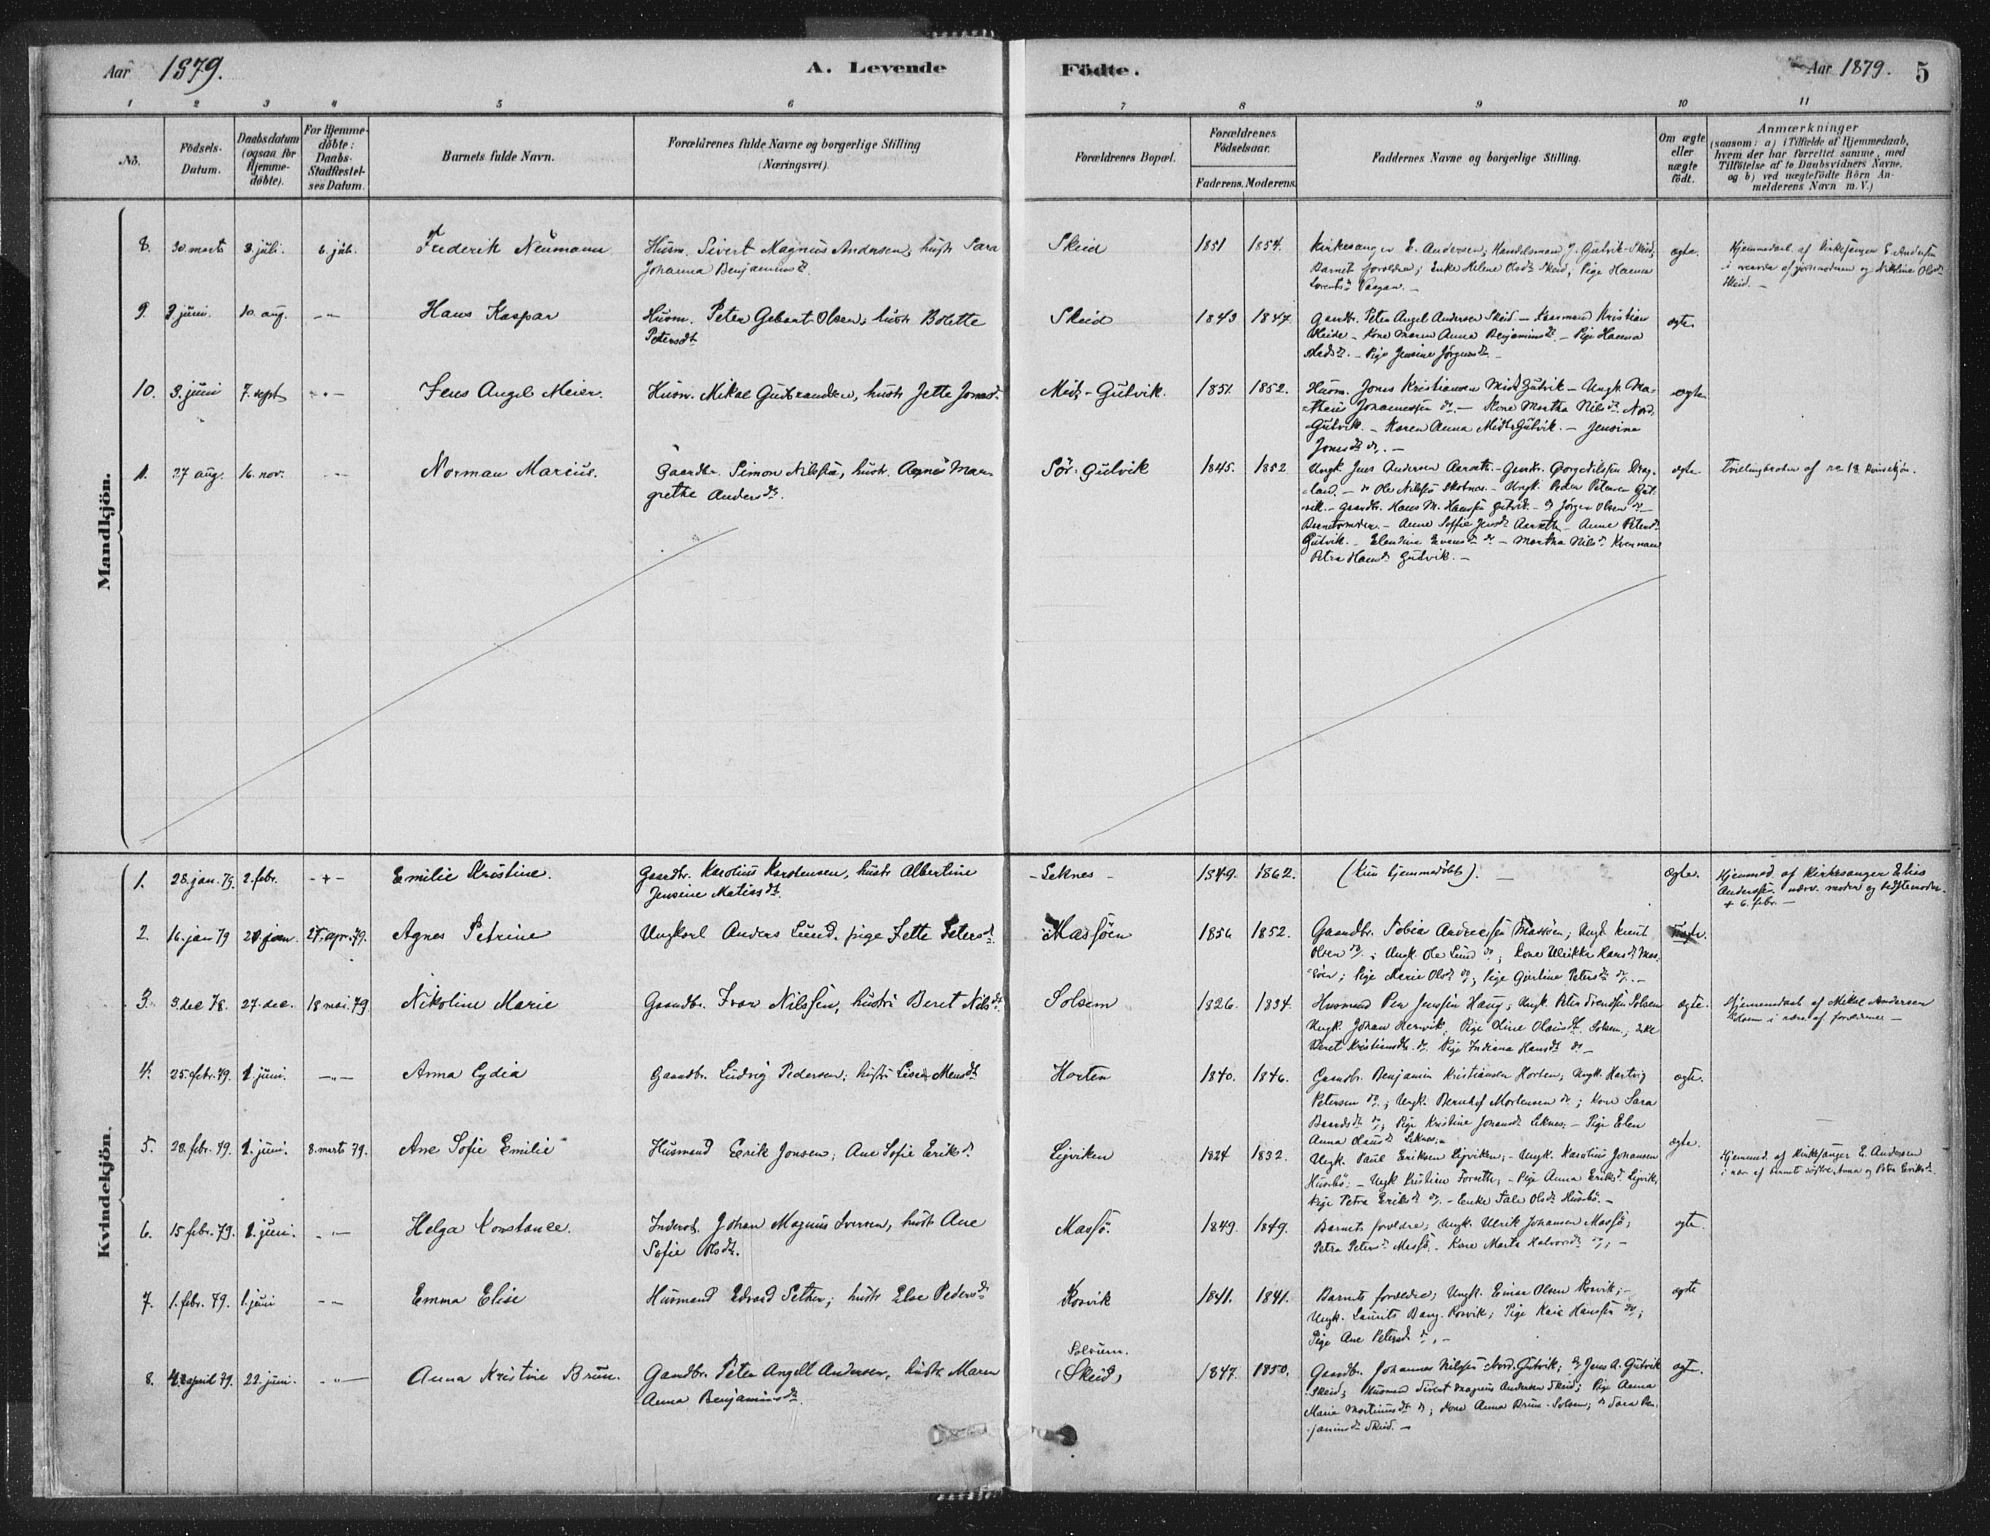 Aar 1879. A. Levende Födte. Aar 1879. 5
1 2 3 4 5 6 7 8 9 10 11
No. Födsels-Datum. Daabsdatum (ogsaa for Hjemme-döbte). For Hjemme-döbte: Daabs-Stadfæstel-ses Datum. Barnets fulde Navn. Forældrenes fulde Navne og borgerlige Stilling (Næringsvei). Forældrenes Bopæl. Forældrenes Födselsaar. Faderens. Moderens. Faddernes Navne og borgerlige Stilling. Om ægte eller uægte födt. Anmærkninger
(saasom: a) i Tilfælde af Hjemmedaab,
hvem der har forrettet samme, med
Tilföielse af to Daabsvidners Navne,
og b) ved uægtefödte Börn An-
melderens Navn m. V.)
Mandkjön.
8. 30. marts 3. juli. 6. juli. Frederik Neumann. Husm. Sivert Magnus Andersen, hustr. Sara
Johanna Benjaminsdr.
Skeid 1851 1854.
Kirkesanger E. Andersen; Handelsmand J. Gutvik-Skeid;
Barnets forældre; Enke Helene Olsdr. Skeid; Pige Hanna
Lorentsdr. Vaagan. —
ægte.
Hjemmedøbt af Kirkesanger E. Andersen
i nærvær af jordmoderen og Nikoline Olsdr.
Skeid. —
9. 3 juni. 10. aug. Hans Kaspar Husm. Peter Gebart Olsen, hustr. Bolette
Petersdtr.
Skeid 1843 1847.
Gaardbr. Peter Angel Andersen Skeid — Kristian
— Kone Maren Anna Benjaminsdr. — Pige Hanna
— Pige Jensine Jørgensdr. —
ægte
10. 3. juni 7. sept Jens Angel Meier. Husm. Mikal Gudbrandsen, hustr. Jette Jonasdr.
Midt-Gutvik. 1851. 1852.
Husm. Jonas Kristiansen Midt Gutvik — Ungk. Ma-
theus Johannessen do. — Kone Martha Nilsdr. Nord-
Gutvik. — Karen Anna Midt Gutvik. — Jensine
Jonsdr. do. —
ægte
11. 27 aug. 16. nov. Norman Marius. Gaardbr. Simon Nilssen, hustr. Agnes Mar-
grethe Andersdr.
Sør-Gutvik 1845. 1852
Ungk. Jens Andersen Aarseth. — Gaardbr. Nilssen
— do Ole Nilssen — Ungk. Peder Petersen Gut-
vik. — Gaardbr. Hans M. Hansen Gutvik. — do Jørgen Olsen do —
Barnets moder. — Anne Soffie Jensdr. Aarseth — Anne Petersdr.
Gutvik. — — Martha Nilsdr.
Petra Hansdr. Gutvik. —
ægte
Tvillingbroder af no 18
Kvindekjön.
1. 28. jan. 79. 2. febr. Emilie Kristine. Gaardbr. Karolius Karstensen, hustr. Albertine
Jensine Matiasdr.
Leknes 1849. 1862.
(kun hjemmedøbt). —
ægte.
Hjemmed. af Kirkesanger Elias
Anderssen nærv. moder og bedstemoder.
+ 6. febr. —
2. 16. jan 79 27. apr. 79. Agnes Petrine Ungkarl Anders Lund. pige Jette Petersdr.
Massøen 1856 1852.
Gaardbr. Tobias Andreassen Massøen; Ungk. Knut
Olsen do.; Ungk. Ole Lund do; Kone Ulrikke Hansdr. Mas-
søen; Pige Marie Olsdr. do; Pige Gjertine Petersdr. do. —
3. 3. dec 78. 27. dec. 18. mai. 79. Nikoline Marie Gaardbr. Ivar Nilssen, hustr. Beret Nilsdr.
Solsem 1826. 1834.
Husmand Per Jenssen Haug; Ungk. Peter Solsem
Ungk. Johan Hervik; Pige Oline Olausdr. Solsem; Enke
Beret Kristiansdr. do. Pige Indiana Hansdr. do —
ægte.
Hjemmedøbt af Mikal Andersen
Solsem i nærv. af forældrene —
4. 25. febr. 79. 1 juni. Anna Lydia Gaardbr. Ludvig Pedersen; hustr. Lise Monsdr.
Horten 1840. 1846.
Gaardbr. Benjamin Kristiansen Horten; Ungk. Hartvig
Petersen do.; Ungk. Bernhof Mortensen do; Kone Sara
Baardsdr. do; Pige Kristine Johansdr. Leknes; — Pige Elen
Anna Olausdr. Leknes. —
ægte.
5. 28. febr. 79. 1. juni. 8. marts 79. Ane Sofie Emilie Husmand Erik Jonsen; Ane Sofie Eriksdr.
Lysviken 1824 1832.
Ungk. Paul Eriksen Ligviken; — Ungk. Karolius Johansen
Husbø; — Ungk. Kristian Forseth; — Pige Anna Eriksdr. Ligvik;
Pige Petra Eriksdr. do. — Enke Sale Olsdr. Husbø. —
ægte.
Hjemmed. af Kirkesanger E. Andersen
i nær. af barnets søstre Anna og Petra Eriksdr.
6. 15 febr. 79. 1. juni. Helga Konstance. Inderst. Johan Magnus Iversen, hustr. Ane
Sofie Olsdr.
Massø. 1849. 1849.
Barnets forældre; Ungk. Ulrik Johansen Massø;
Petra Petersdr. Massø; Kone Marta Halvorsdr. do; —
ægte.
7. 1. febr. 79. 1. juni Emma Elise Husmand Edvard Sether; hustr. Else Pedersdr.
Rosvik 1841. 1841.
Barnets forældre; Ungk. Einar Olsen Rosvik; —
Ungk. Laurits Bang Rosvik; Pige Kaia Hanssen do;
Pige Ane Petersdr. do. —
ægte
8. april 79. 22. juni. Anna Kristine Bruun. Gaardbr. Peter Angell Andersen, hustr. Maren
Anna Benjaminsdr.
Solsem.
(Skeid) 1847. 1850.
Gaardbr. Johannes Nilssen Nord. Gutvik; do Jens A. Gutvik
Skeid; Husmand Sivert Magnus Andersen Skeid; Pige Anna
Marie Martinusdr. do; Kone Anna Bruun Solsem; do Sara Ben-
jaminsdr. Skeid. —
ægte.